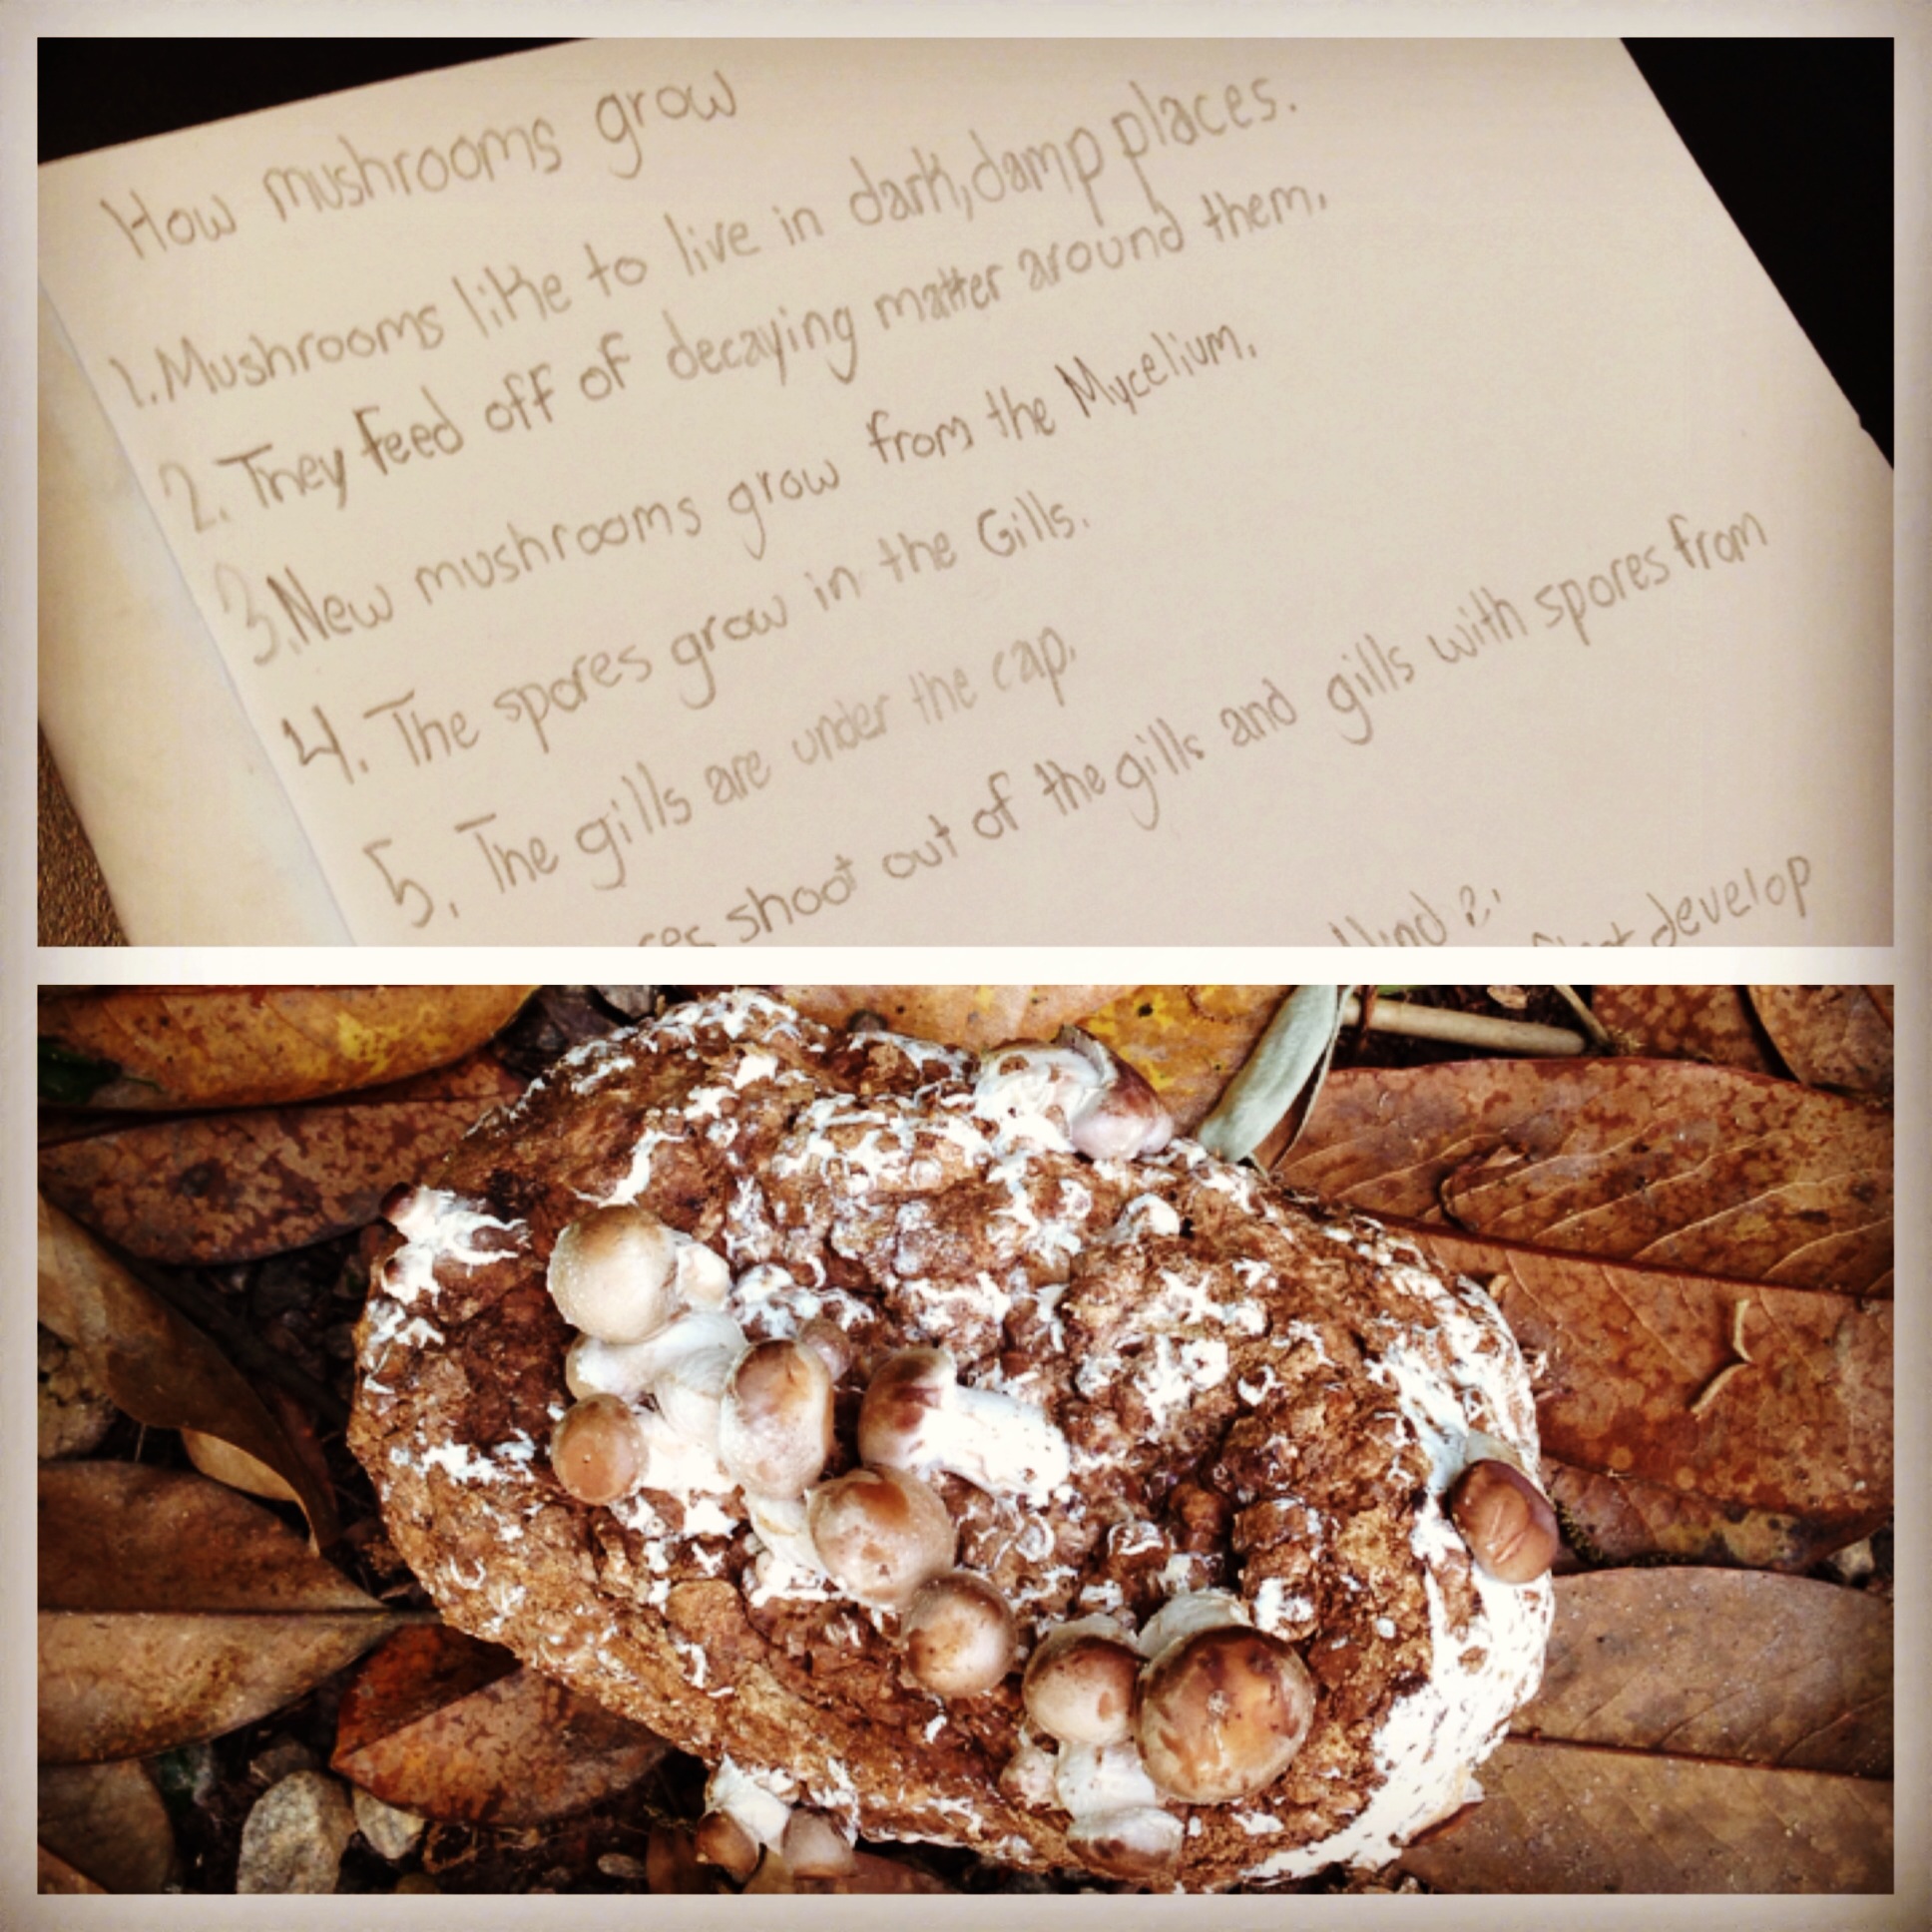 How mushrooms grow
1. Mushrooms like to live in dark, damp places.
2. They feed off of decaying matter around them.
3. New mushrooms grow from the Mycelium.
4. The spores grow in the Gills.
5. The gills are under the cap.
shoot out of the gills and gills with spores from
develop